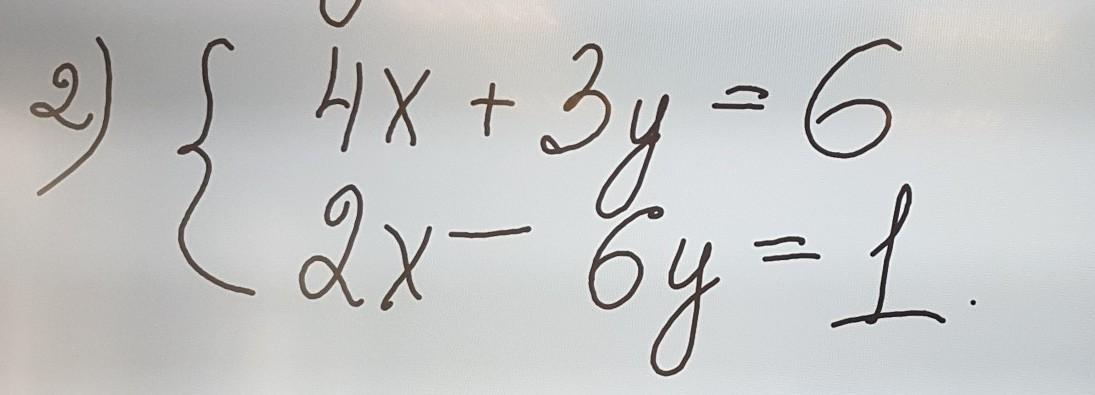 2) { 4x + 3y = 6
2x - 6y = 1.